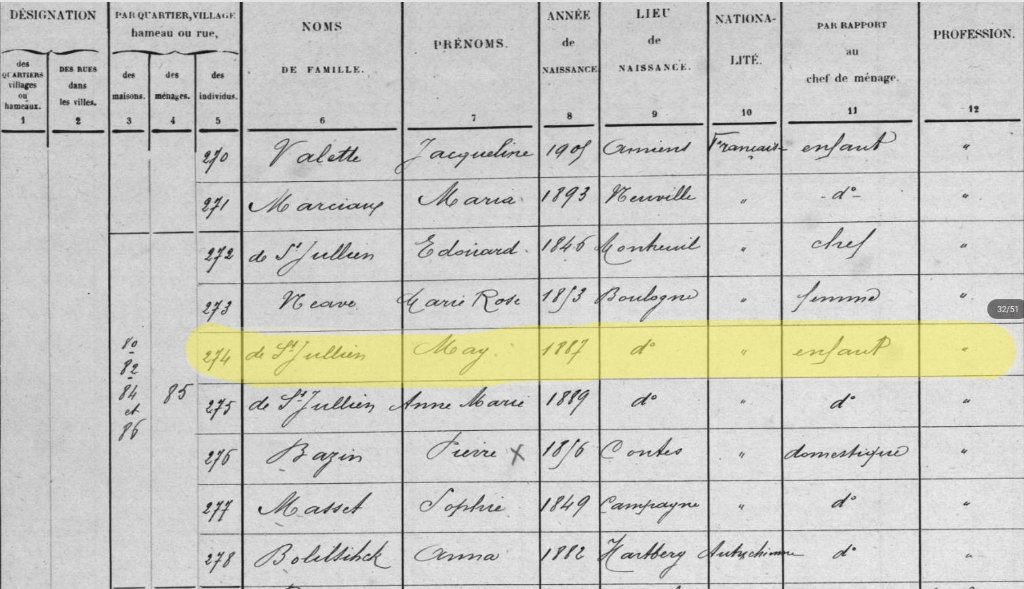 DÉSIGNATION PAR QUARTIER, VILLAGE hameau ou rue, NOMS DE FAMILLE. PRÉNOMS. ANNÉE de NAISSANCE LIEU de NAISSANCE. NATIONALITÉ. PAR RAPPORT au chef de ménage. PROFESSION.
des QUARTIERS villages ou hameaux. DES RUES dans les villes. des maisons. des ménages. des individus.
1 2 3 4 5 6 7 8 9 10 11 12
270 Valette Jacqueline 1905 Amiens Française enfant "
271 Marciaux Maria 1893 Neuville " - d° - "
272 de St Jullien Edouard 1846 Montreuil " chef "
273 Neave Marie Rose 1853 Boulogne " femme "
80 274 de St Jullien May 1887 d° " enfant "
82
84 85 275 de St Jullien Anne Marie 1889 d° " d° "
et
86
276 Bazin Pierre x 1856 Contes " domestique "
277 Masset Sophie 1849 Campagne " d° "
278 Anna 1882 Hartberg d° "
32/51